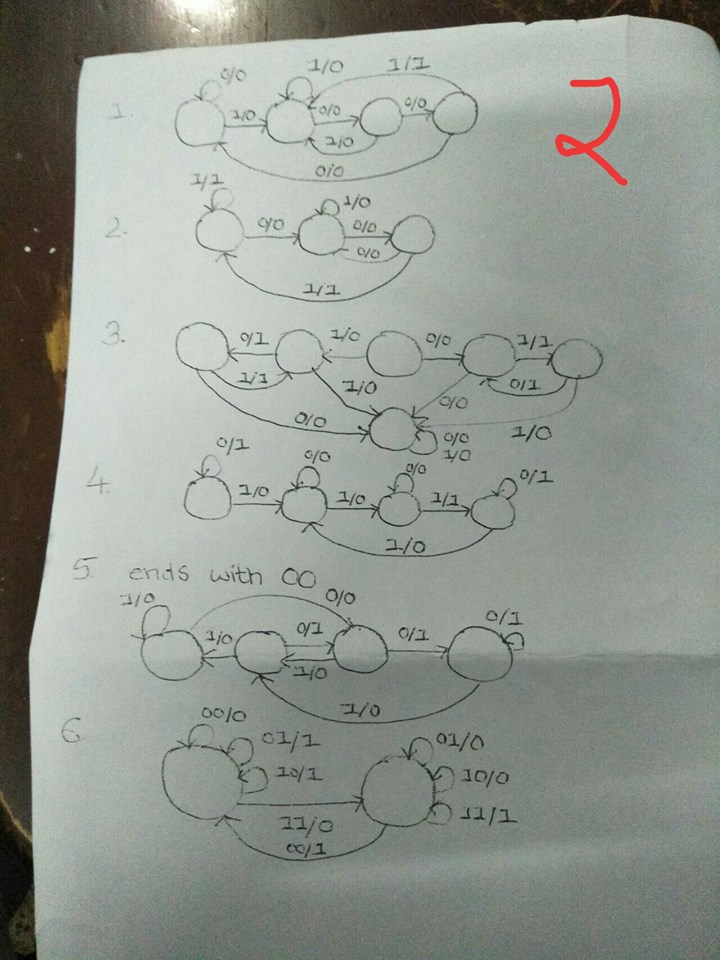 2
1.
0/0 1/0 1/1
1/0 0/0 0/0
1/0
0/0
2.
1/1 1/0
0/0 0/0
0/0
1/1
3.
0/1 1/0 0/0 1/1
1/1 1/0 0/1
0/0
0/0 0/0 1/0
1/0
4.
0/1 0/0 0/0 0/1
1/0 1/0 1/1
1/0
5. ends with 00
1/0 0/0
1/0 0/1 0/1 0/1
1/0
1/0
6.
00/0 01/0
01/1
10/1 10/0
11/1
11/0
00/1